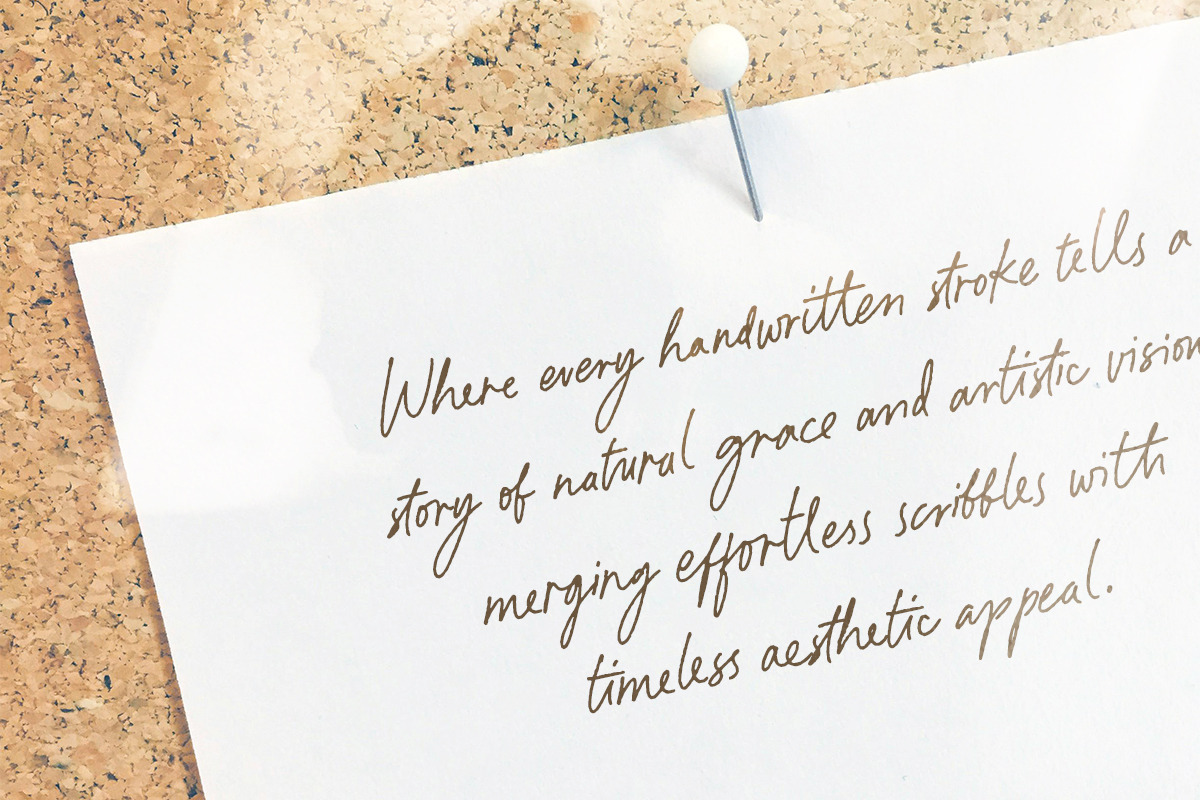 Where every handwritten stroke tells a
story of natural grace and artistic vision
merging effortless scribbles with
timeless aesthetic appeal.